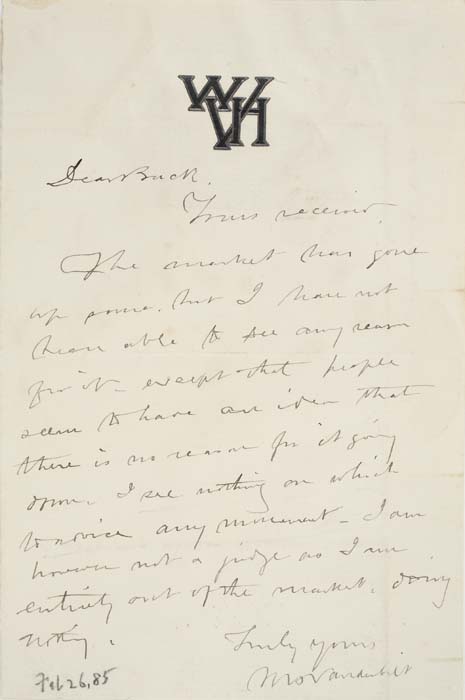 WHV
Dear Buck.
Yours received.
The market has gone
up some. but I have not
been able to see any reason
for it - except that people
seem to have an idea that
there is no reason for it going
down. I see nothing on which
to advice any movement - I am
however not a judge as I am
entirely out of the market. doing
nothing.
Truly yours
WHVanderbilt
Feb 26, 85